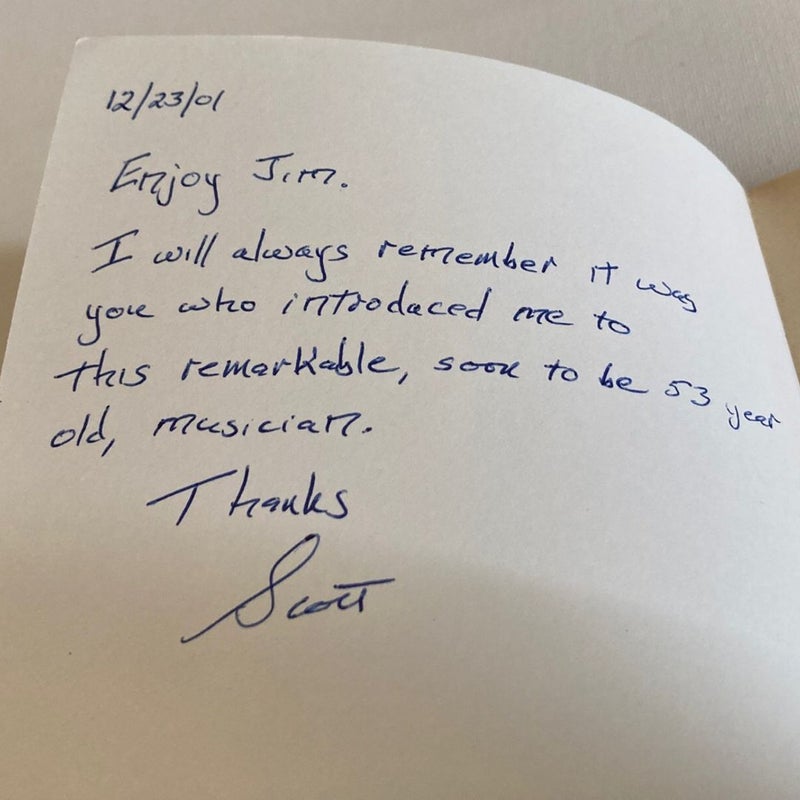 12/23/01
Enjoy Jim.
I will always remember it was
you who introduced me to
this remarkable, soon to be 53 year
old, musician.
Thanks
Scott